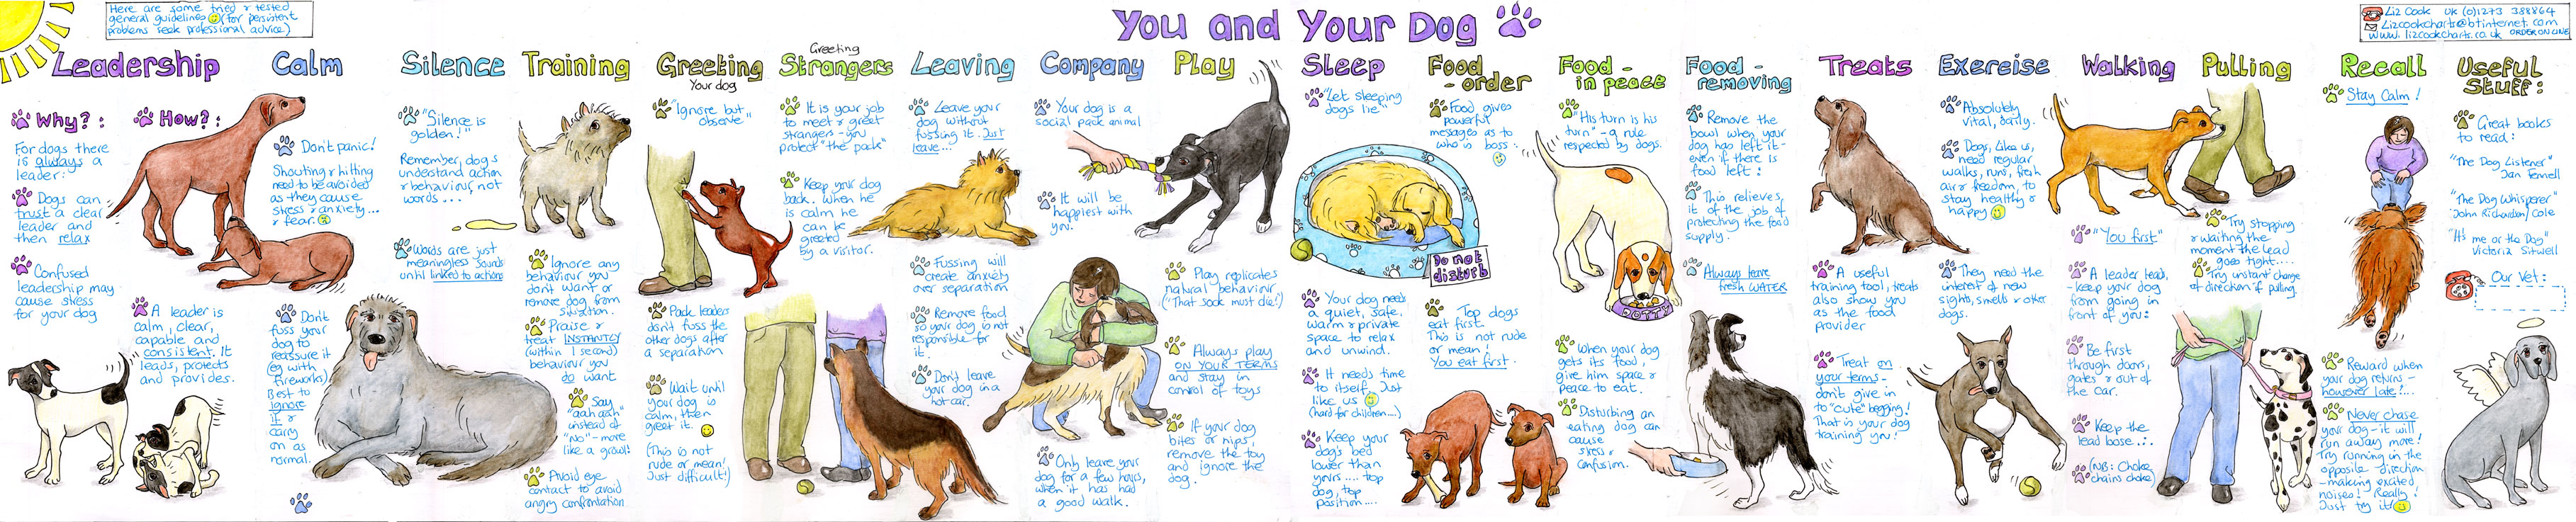 Here are some tried & tested
general guidelines (for persistent
problems seek professional advice)
You and Your Dog
Liz Cook UK (0)1273 388864
Lizcookcharts@btinternet.com
www.lizcookcharts.co.uk ORDER ONLINE
Leadership
Why?:
For dogs there
is always a
leader:
Dogs can
trust a clear
leader and
then relax
Confused
leadership may
cause stress
for your dog
How?:
A leader is
calm, clear,
capable and
consistent. It
leads, protects
and provides.
Calm
Don't panic!
Shouting & hitting
need to be avoided
as they cause
stress & anxiety...
& fear.
Don't
fuss your
dog to
reassure it
(eg with
fireworks)
Best to
ignore
it &
carry
on as
normal.
Silence
"Silence is
golden!"
Remember, dogs
understand action
& behaviour, not
words....
Words are just
meaningless sounds
until linked to actions
Training
Ignore any
behaviour you
don't want or
remove dog from
situation.
Praise &
treat INSTANTLY
(within 1 second)
behaviour you
do want
Say
"aah aah"
instead of
"No" - more
like a growl!
Avoid eye
contact to avoid
angry confrontation
Greeting
Your dog
"Ignore but
observe"
Pack leaders
don't fuss the
other dogs after
a separation
Wait until
your dog is
calm, then
greet it.
(This is not
rude or mean!
Just difficult!)
Greeting
Strangers
It is your job
to meet & greet
strangers - you
protect "the pack"
Keep your dog
back. When he
is calm he
can be
greeted
by a visitor.
Leaving
Leave your
dog without
fussing it. Just
leave...
Fussing will
create anxiety
over separation
Remove food
so your dog is not
responsible for
it.
Don't leave
your dog in a
hot car.
Company
Your dog is a
social pack animal
It will be
happiest with
you.
Only leave your
dog for a few hours,
when it has had
a good walk.
Play
Play replicates
natural behaviour
("That sock must die!")
Always play
ON YOUR TERMS
and stay in
control of toys
If your dog
bites or nips,
remove the toy
and ignore the
dog.
Sleep
"Let sleeping
dogs lie"
Do not
disturb
Your dog needs
a quiet, safe,
warm & private
space to relax
and unwind.
It needs time
to itself. Just
like us
(hard for children....)
Keep your
dog's bed
lower than
yours .... top
dog, top
position....
Food
- order
Food gives
powerful
messages as to
who is boss.
Top dogs
eat first.
This is not rude
or mean!
You eat first.
Food -
in peace
"His turn is his
turn" - a rule
respected by dogs.
DOTTY
When your dog
gets its food,
give him space &
peace to eat.
Disturbing an
eating dog can
cause
stress &
confusion.
Food -
removing
Remove the
bowl when your
dog has left it -
even if there is
food left!
This relieves
it of the job of
protecting the food
supply.
Always leave
fresh WATER
Treats
A useful
training tool, treats
also show you
as the food
provider
Treat on
your terms -
don't give in
to "cute" begging!
That is your dog
training you!
Exercise
Absolutely
vital, daily.
Dogs, like us,
need regular
walks, runs, fresh
air & freedom, to
stay healthy &
happy
They need the
interest of new
sights, smells & other
dogs.
Walking
"You first"
A leader leads,
- keep your dog
from going in
front of you:
Be first
through doors,
gates & out of
the car.
Keep the
lead loose...
(NB: Choke
chains choke)
Pulling
Try stopping
& waiting the
moment the lead
goes tight....
Try instant change
of direction if pulling.
Recall
Stay Calm!
Reward when
your dog returns -
however late!...
Never chase
your dog - it will
run away more!
Try running in the
opposite direction
- making excited
noises! Really!
Just try it
Useful
Stuff:
Great books
to read:
"The Dog Listener"
Jan Fennell
"The Dog Whisperer"
John Richardson/Cole
"It's me or the Dog"
Victoria Sitwell
Our Vet: